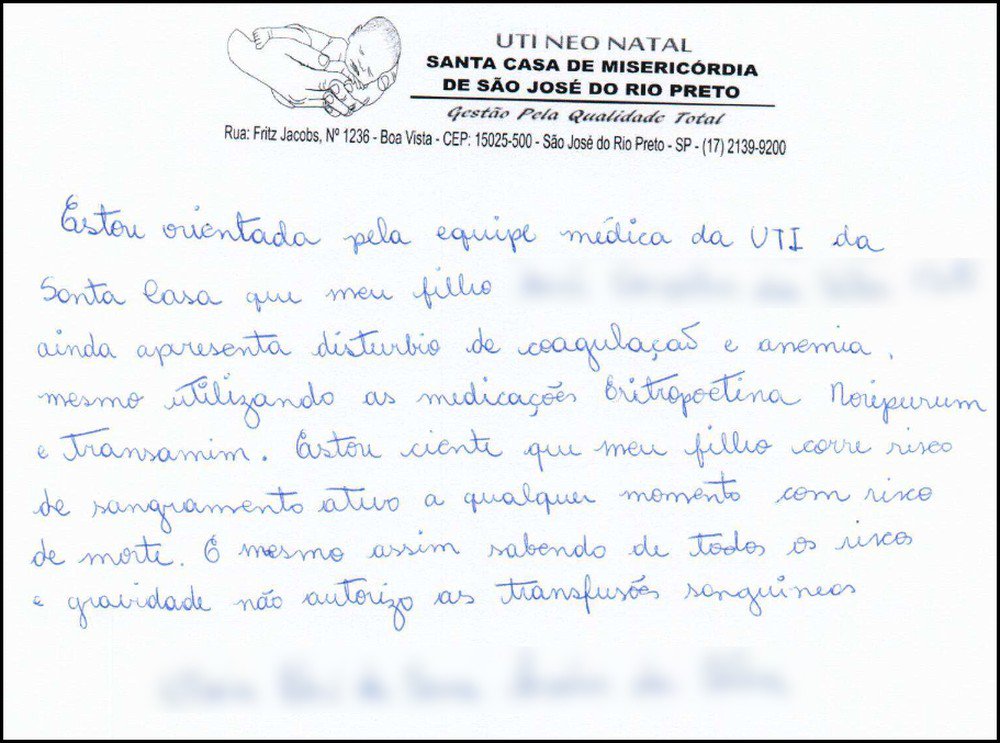 UTI NEO NATAL
SANTA CASA DE MISERICÓRDIA
DE SÃO JOSÉ DO RIO PRETO
Gestão Pela Qualidade Total
Rua: Fritz Jacobs, Nº 1236 - Boa Vista - CEP: 15025-500 - São José do Rio Preto - SP - (17) 2139-9200
Estou orientada pela equipe médica da UTI da
Santa Casa que meu filho
ainda apresenta disturbio de coagulação e anemia,
mesmo utilizando as medicações Eritropoetina Noripurum
e Transamim. Estou ciente que meu filho corre risco
de sangramento ativo a qualquer momento com risco
de morte. E mesmo assim sabendo de todos os riscos
e gravidade não autorizo as transfusões sanguíneas